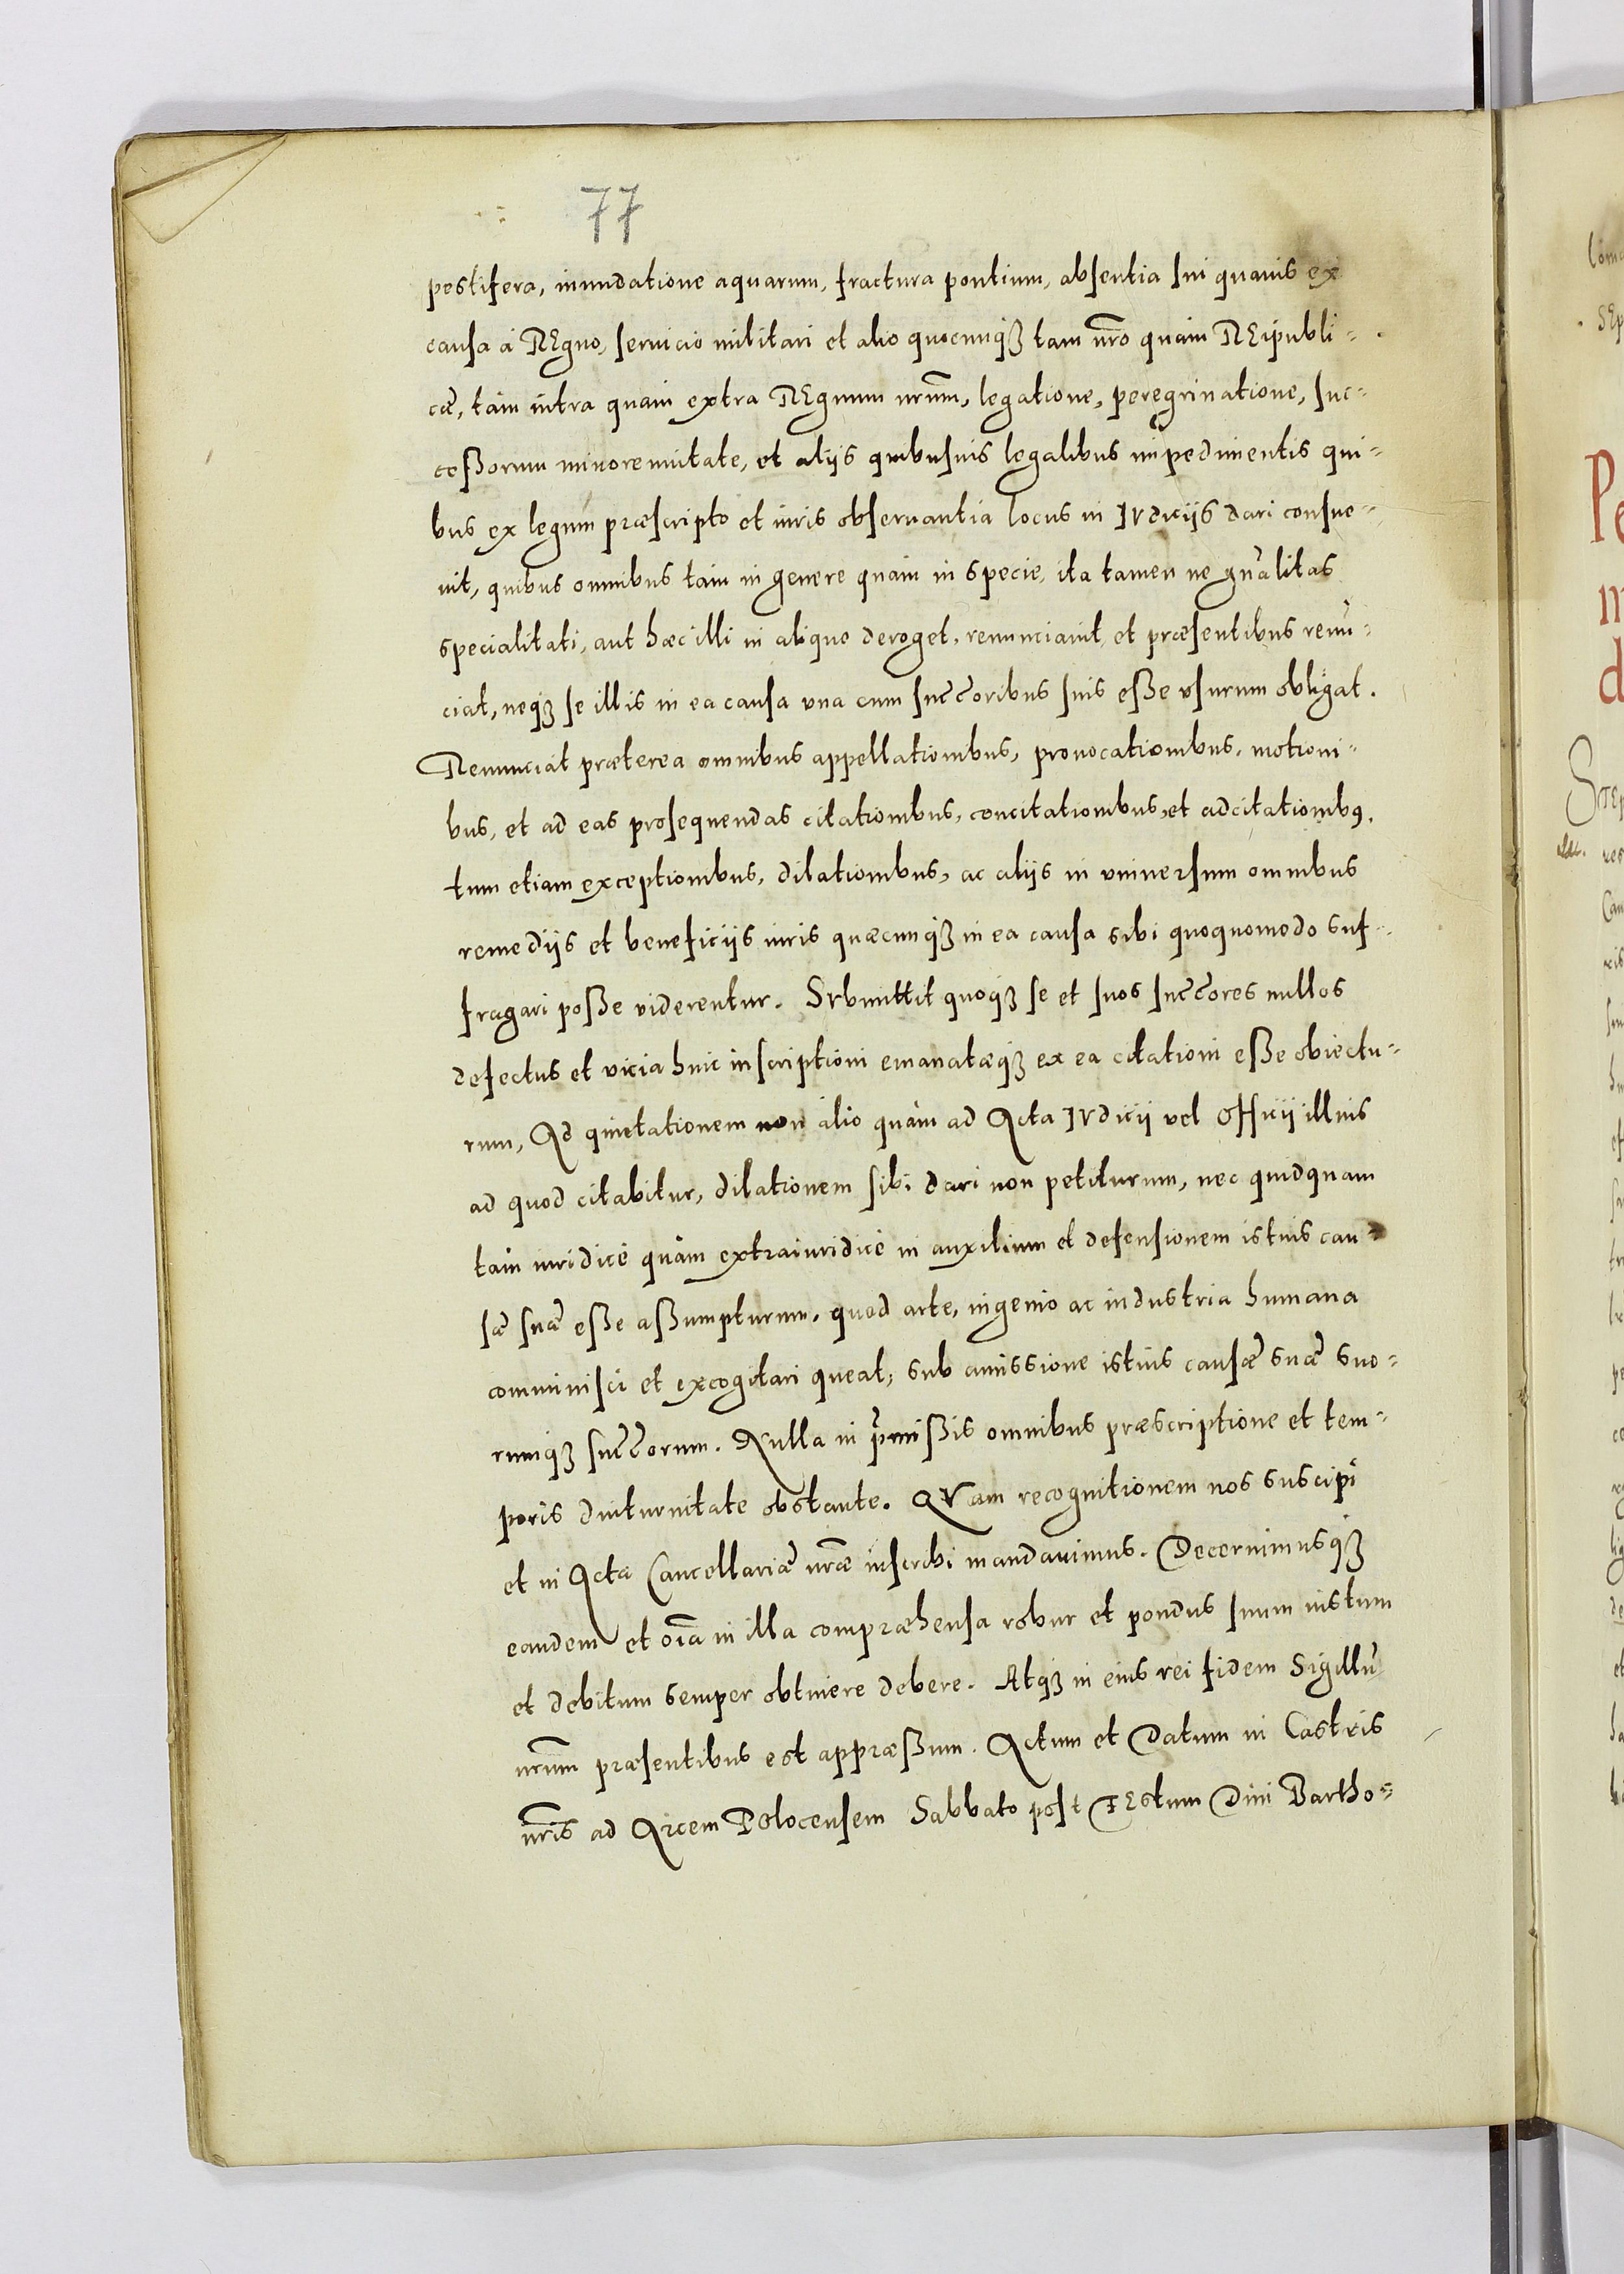 77
pestifera, inundatione aquarum, fractura pontium, absentia sui quauis ex
causa à REgno, seruicio militari et alio quocunqꝫ tam nr̃o quàm REipubli=
cæ, tàm intra quàm extra REgnum nr̃um, legatione, peregrinatione, suc=
ceßorum minorennitate, et alijs quibusuis legalibus impedimentis qui=
bus ex legum præscripto et iuris obseruantia locus in IVdicijs dari consue=
uit, quibus omnibus tàm in genere quàm in specie, ita tamen ne gn̄alitas
specialitati, aut hæc illi in aliquo deroget, renunciauit, et præsentibus renū=
ciat, neqꝫ se illis in ea causa vna cum succ̄oribus suis eße vsurum obligat.
Renunciat præterea omnibus appellationibus, prouocationibus, motioni=
bus, et ad eas prosequendas citationibus, concitationibus, et adcitationibꝰ.
tum etiam exceptionibus, dilationibus, ac alijs in vniuersum omnibus
remedijs et beneficijs iuris quæcunqꝫ in ea causa sibi quoquomodo suf=
fragari poße viderentur. SVbmittit quoqꝫ se et suos succ̄ores nullos
defectus et vicia huic inscriptioni emanatæqꝫ ex ea citationi eße obiectu=
rum, Ad quietationem non aliò quàm ad Acta IVdicij vel Officij illius
ad quod citabitur, dilationem sibi dari non petiturum, nec quidquam
tàm iuridicè quàm extraiuridicè in auxilium et defensionem istius cau=
sæ suæ eße aßumpturum, quod arte, ingenio ac industria humana
comminisci et excogitari queat, sub amissione istius causæ suæ suo=
rumqꝫ succ̄orum. Nulla in p̄mißis omnibus præscriptione et tem=
poris diuturnitate obstante. QVam recognitionem nos suscipi
et in Acta Cancellariæ nr̃æ inscribi mandauimus. Decernimusqꝫ
eandem et oīa in illa compræhensa robur et pondus suum iustum
et debitum semper obtinere debere. Atqꝫ in eius rei fidem Sigillū
nr̃um præsentibus est appræßum. Actum et Datum in Castris
nr̃is ad Arcem Polocensem Sabbato post FEstum Diui Bartho=